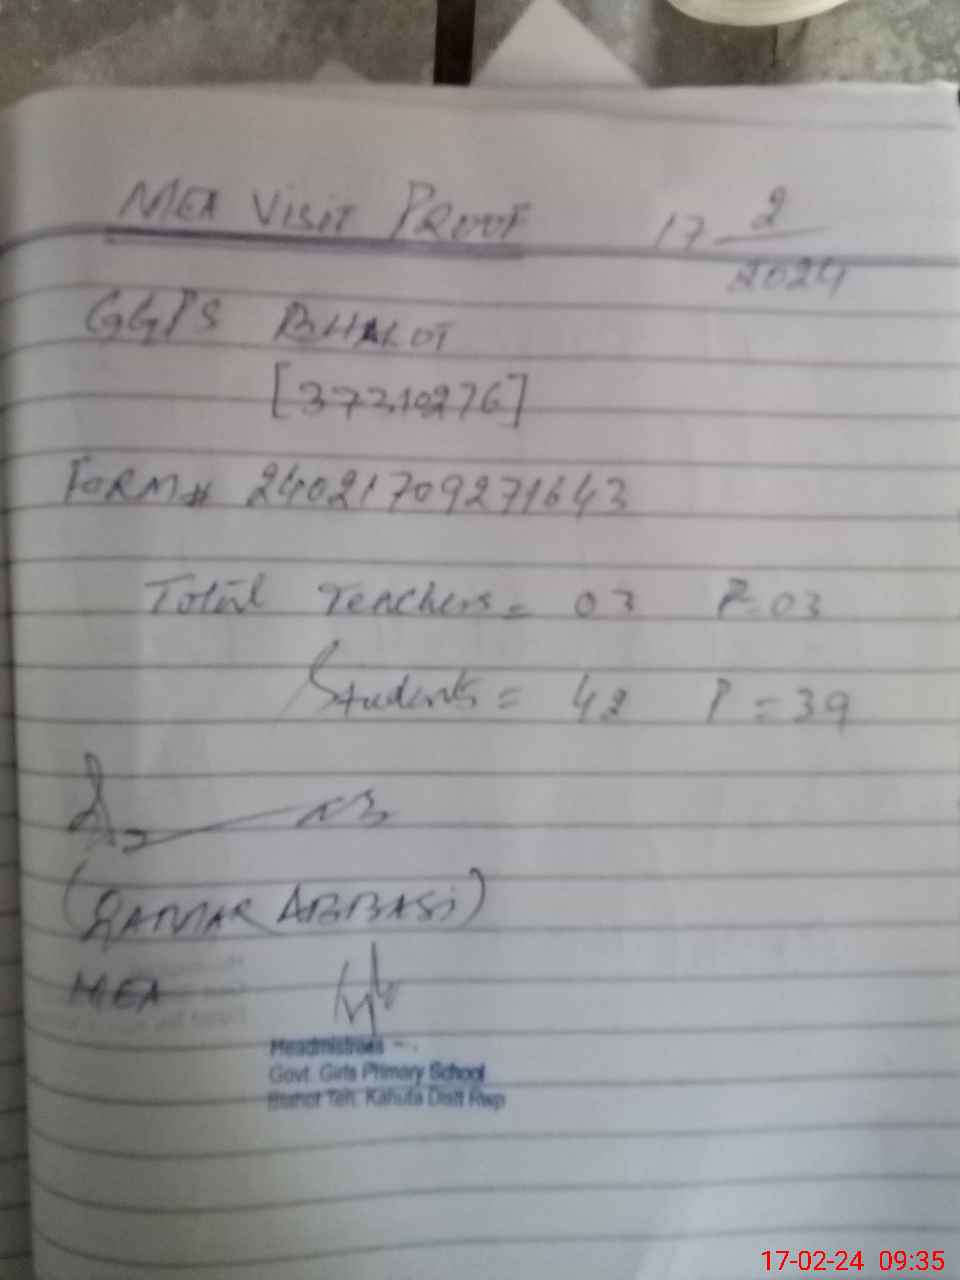 MEA VISIT PROOF 17 2/2024
GGPS BHALOT
[37310276]
FORM# 24021709271643
Total Teachers = 03 P=03
Students = 42 P=39
(QAMAR ABBASI)
MEA
Headmistress
Govt. Girls Primary School
Bhalot Teh. Kahuta Distt Rwp
17-02-24 09:35